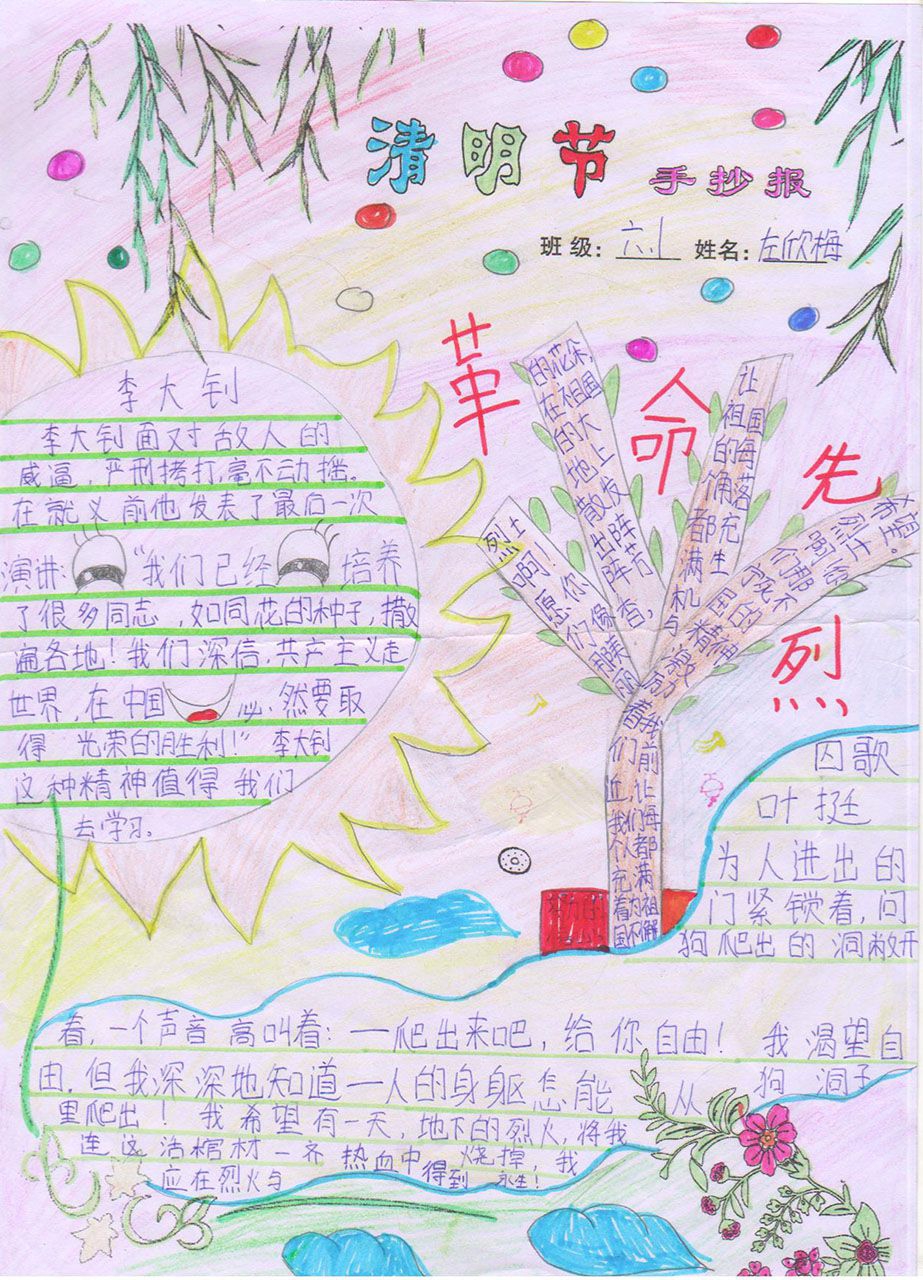 清明节
手抄报
班级：六.1 姓名：左欣梅
革命先烈
李大钊
李大钊面对敌人的
威逼，严刑拷打，毫不动摇。
在就义前他发表了最后一次
演讲：“我们已经培养
了很多同志，如同花的种子，撒
遍各地！我们深信，共产主义走
世界，在中国必然要取
得 光荣的胜利！”李大钊
这种精神值得我们
去学习。
烈士啊！愿你们像那美丽
的花朵，在祖国的大地上散发出阵阵芳香，
让祖国的每个角落都充满生机与
烈士给
囚歌
叶挺
为人进出的
门紧锁着，问
狗爬出的洞敞开
着，一个声音高叫着：一爬出来吧，给你自由！我渴望自
由，但我深深地知道一人的身躯怎能从狗洞子
里爬出！我希望有一天，地下的烈火，将我
连这活棺材一齐 烧掉，我
应在烈火与热血中得到永生！